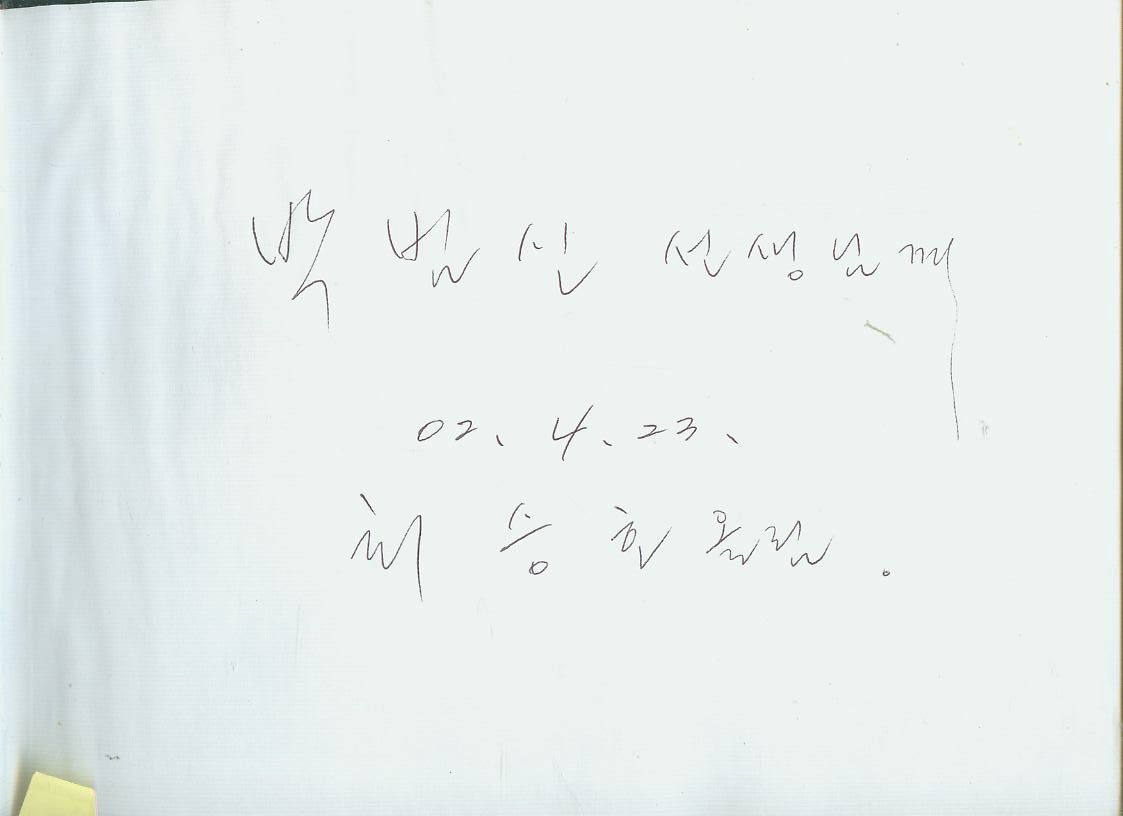 백 범 신 선생님께
02. 4. 23.
채 승 헌 올림.